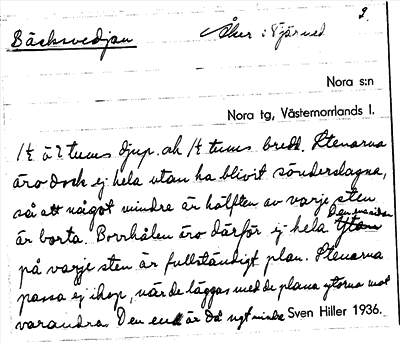 2.
Bäcksvedjan Åker i Fjärned
Nora s:n
Nora tg, Västernorrlands l.
1½ à 2 tums djup och 1½ tums bredd. Stenarna
äro dock ej hela utan ha blivit sönderslagna,
så att något mindre är hälften av varje sten
är borta. Borrhålen äro därför ej hela. Den ena sidan
på varje sten är fullständigt plan. Stenarna
passa ej ihop, när de läggas med de plana ytorna mot
varandra. Den ena är ngt mindre Sven Hiller 1936.